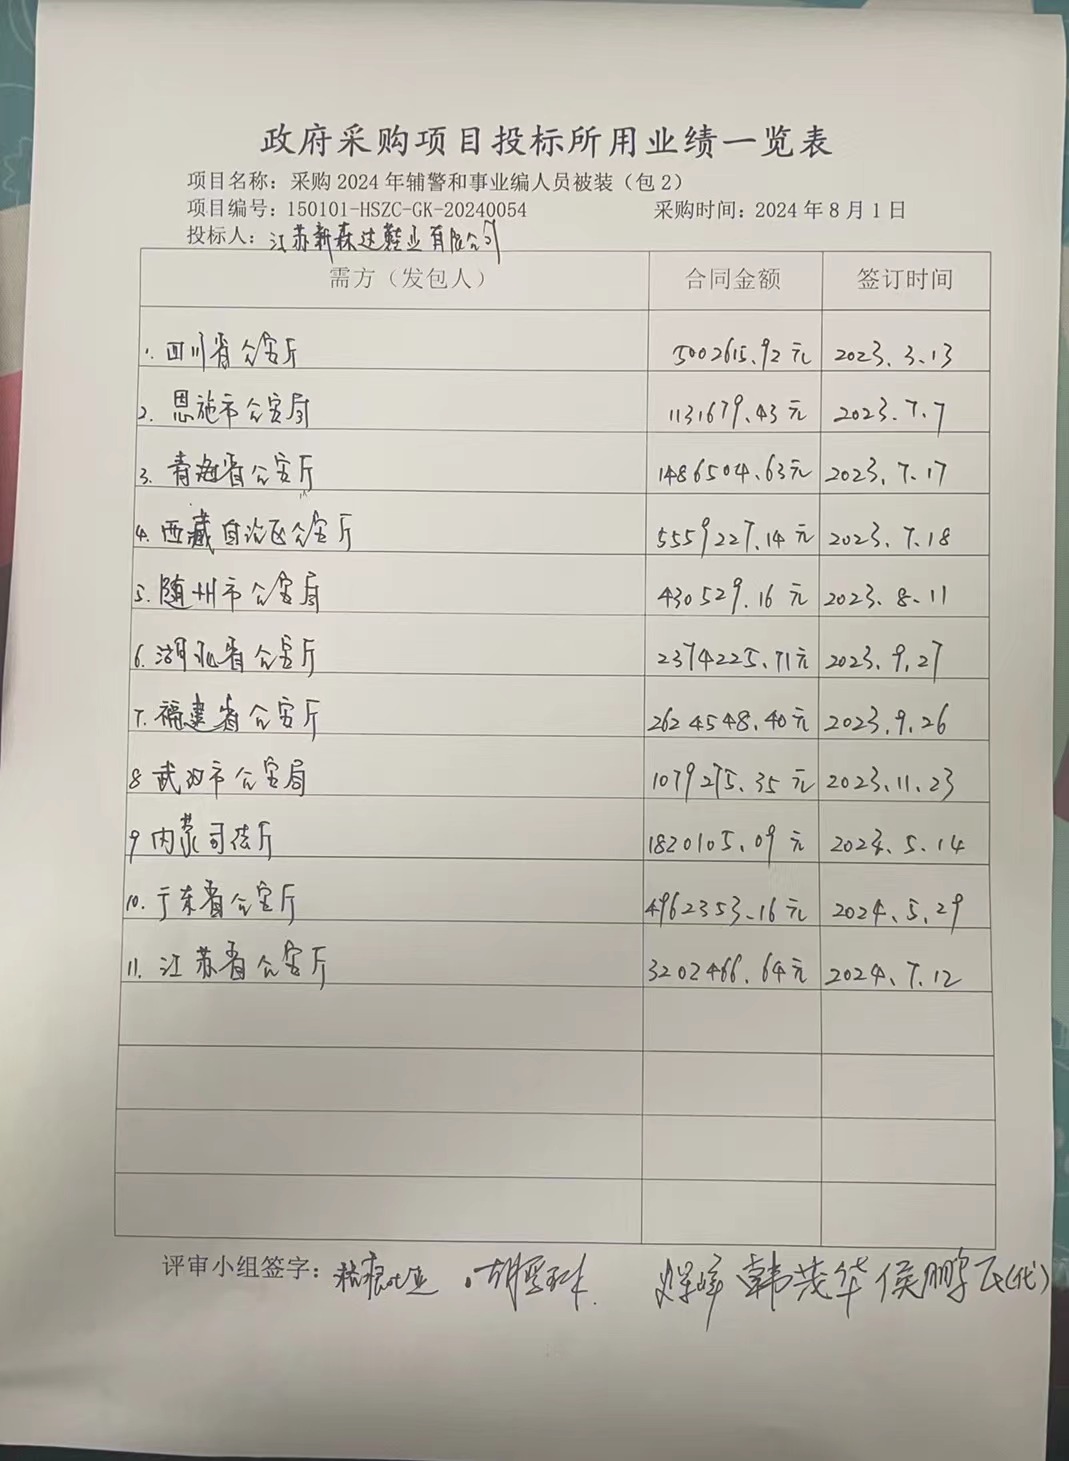 政府采购项目投标所用业绩一览表
项目名称：采购2024年辅警和事业编人员被装（包2）
项目编号：150101-HSZC-GK-20240054 采购时间：2024年8月1日
投标人：江苏新森达鞋业有限公司
需方（发包人） 合同金额 签订时间
1. 四川省公安厅 5002615.92元 2023.3.13
2. 恩施市公安局 1131679.43元 2023.7.7
3. 青海省公安厅 1486504.63元 2023.7.17
4. 西藏自治区公安厅 5559227.14元 2023.7.18
5. 随州市公安局 430529.16元 2023.8.11
6. 湖北省公安厅 2374225.71元 2023.9.27
7. 福建省公安厅 2624548.40元 2023.9.26
8 武汉市公安局 1079275.35元 2023.11.23
9 内蒙司法厅 1820105.09元 2024.5.14
10. 广东省公安厅 4962353.16元 2024.5.29
11. 江苏省公安厅 3202466.64元 2024.7.12
评审小组签字： 韩茂华 侯鹏飞(代)